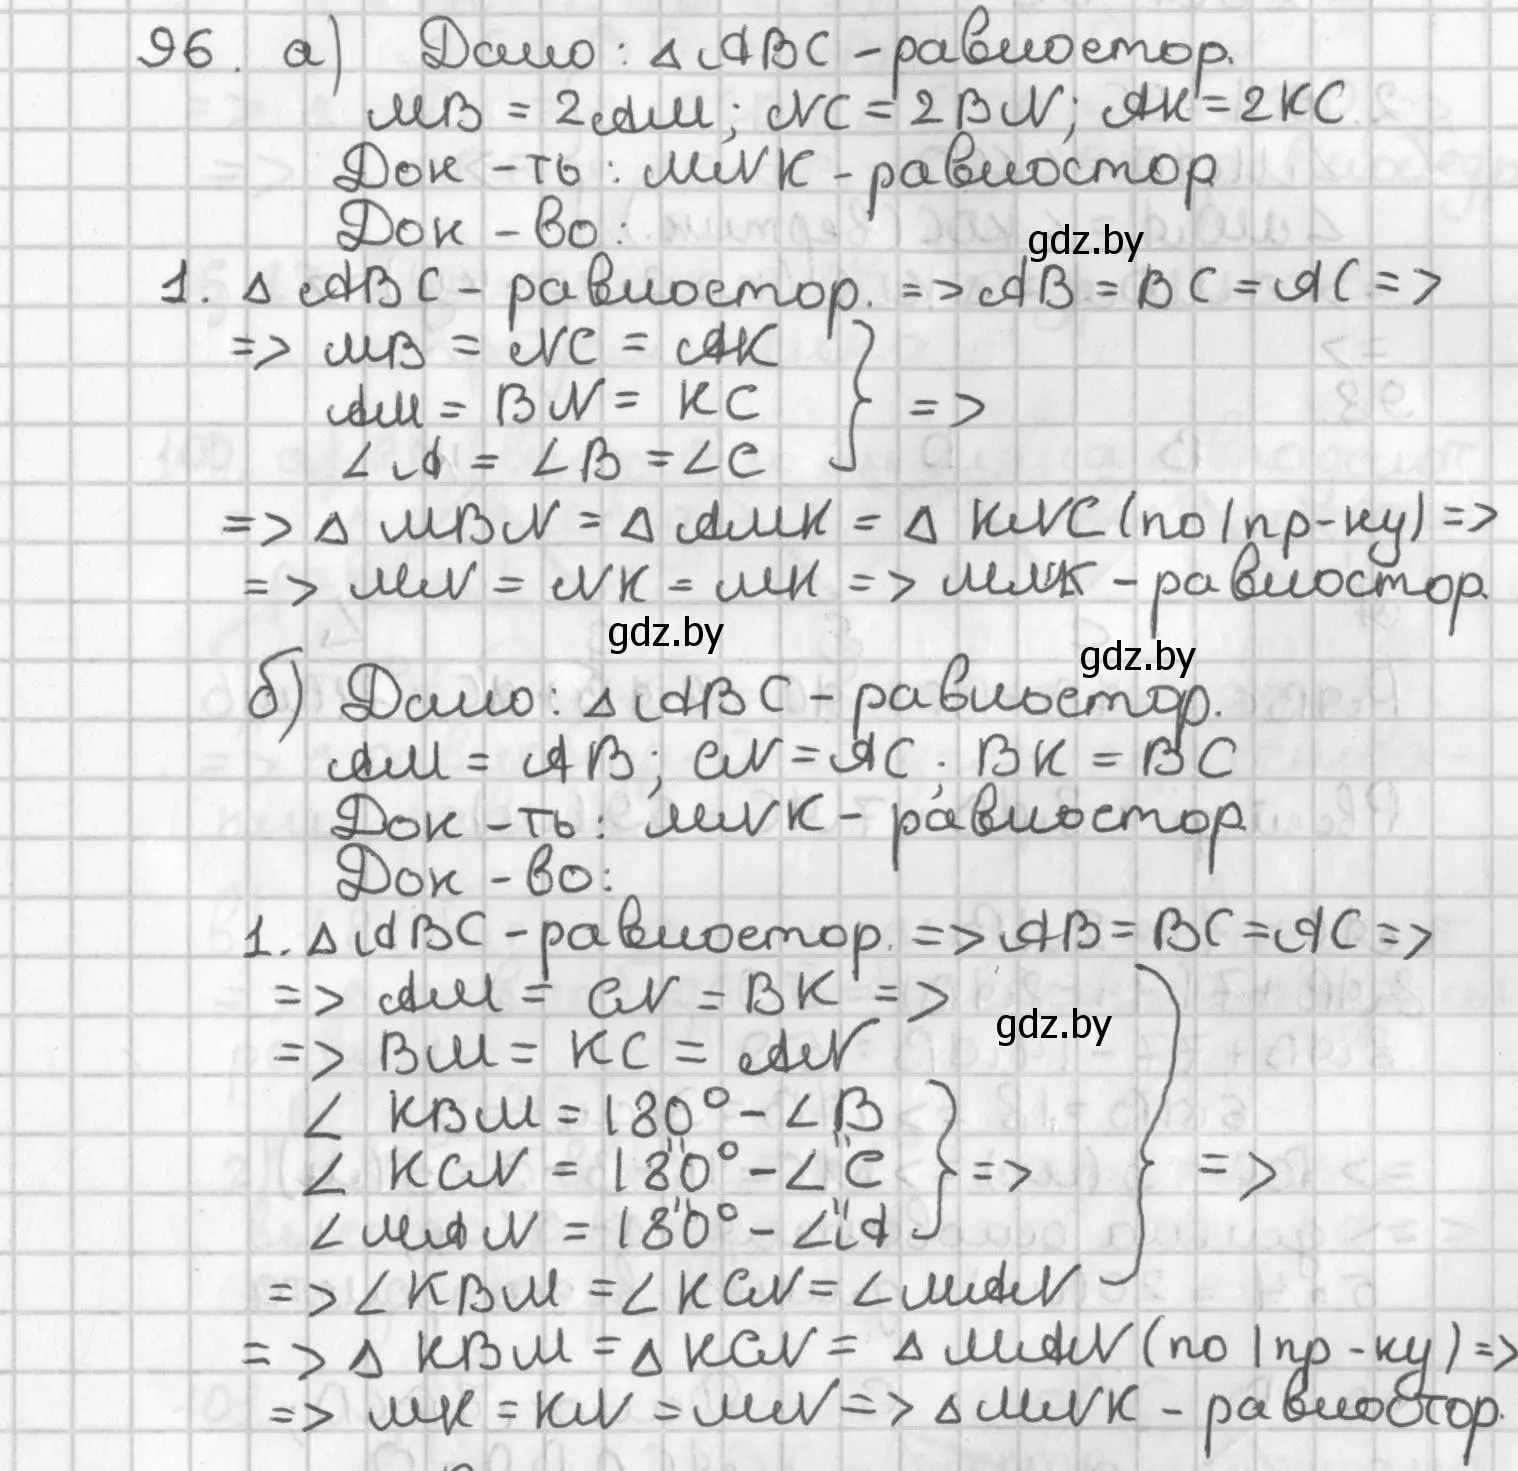 96. а) Дано: △ABC - равностор.
MB = 2AM; NC = 2BN; AK = 2KC
Док-ть: MNK - равностор
Док-во:
gdz.by
1. △ABC - равностор. => AB = BC = AC =>
=> MB = NC = AK
AM = BN = KC } =>
∠A = ∠B = ∠C
=> △ MBN = △ AMK = △ KNC (по I пр-ку) =>
=> MN = NK = MK => MNK - равностор.
gdz.by
gdz.by
б) Дано: △ABC - равностор.
AM = AB; CN = AC; BK = BC
Док-ть: MNK - равностор
Док-во:
1. △ABC - равностор. => AB = BC = AC =>
=> AM = CN = BK =>
gdz.by
=> BM = KC = AN
∠ KBM = 180° - ∠B
∠ KCN = 180° - ∠C } => } =>
∠MAN = 180° - ∠A
=> ∠KBM = ∠KCN = ∠MAN
=> △ KBM = △ KCN = △ MAN (по I пр-ку) =>
=> MK = KN = MN => △MNK - равностор.